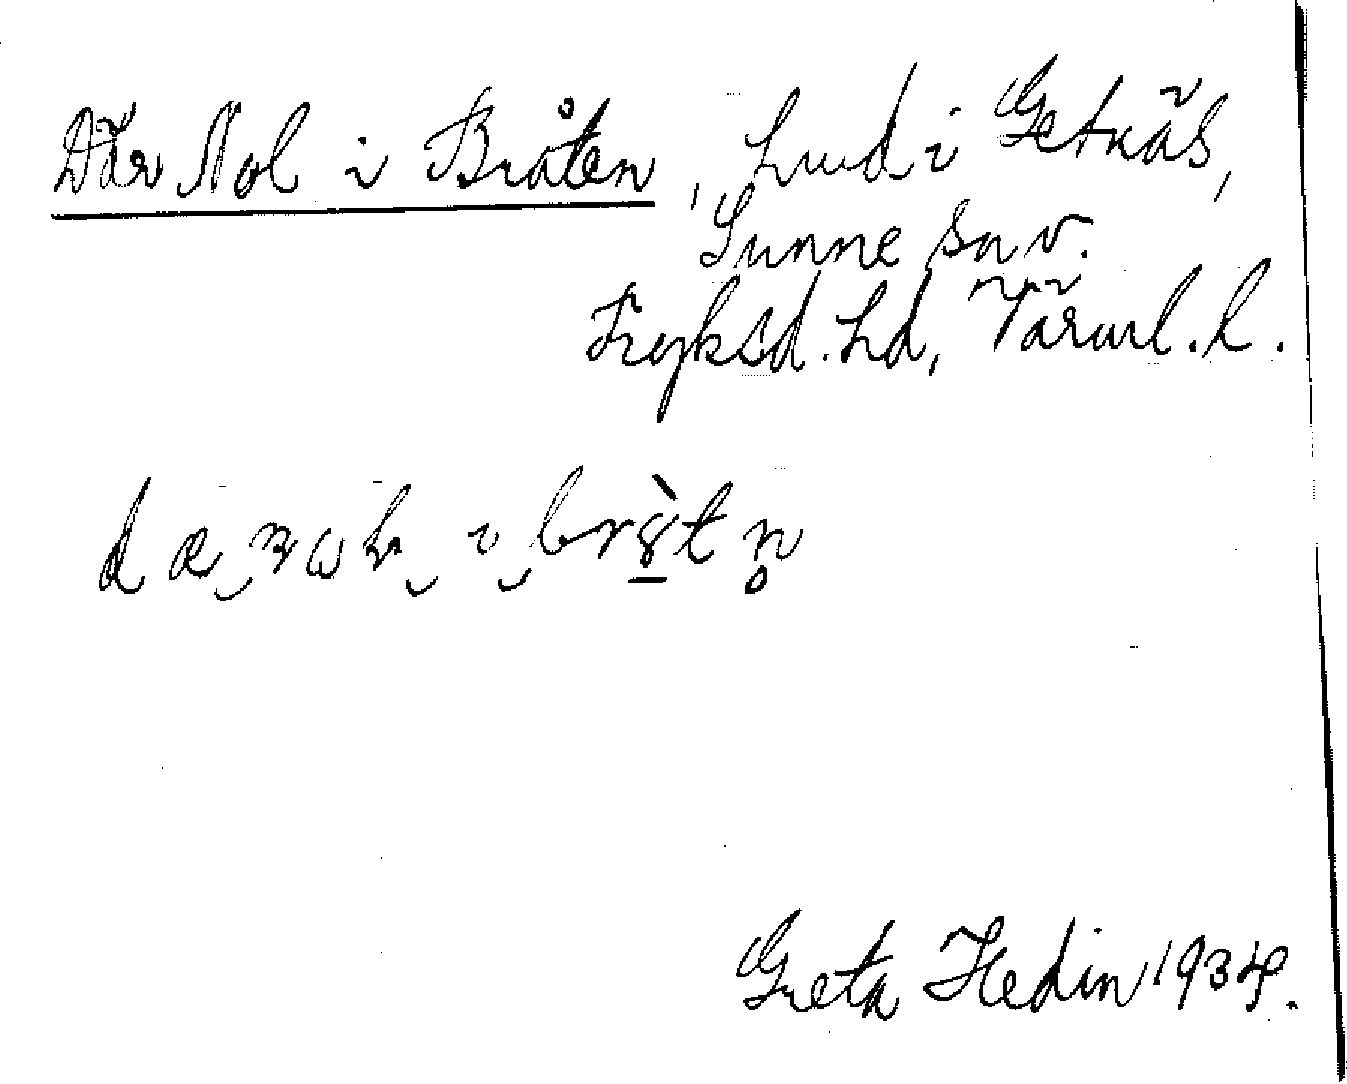 Där Nol i Bråten, Lund i Getnäs,
Sunne sn v.
Fryksd. hd, Värml. l.
Greta Hedin 1934.